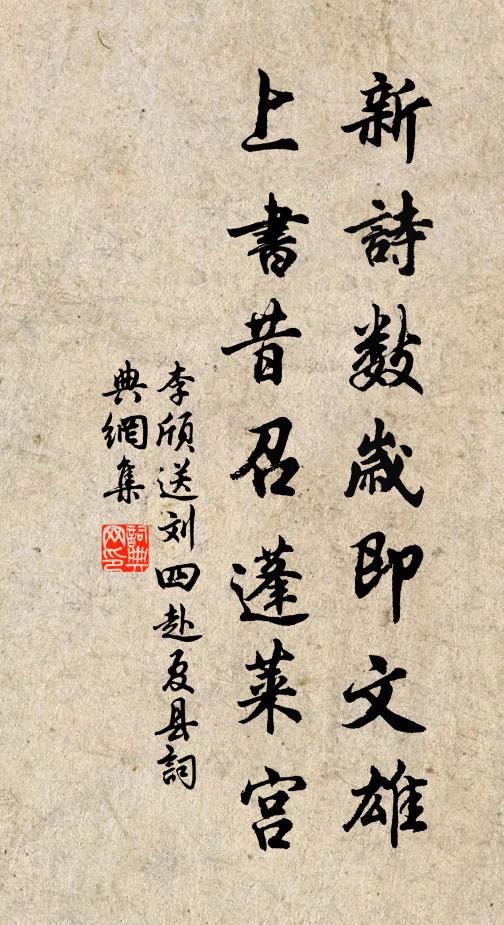 新詩數歲即文雄
上書昔召蓬萊宮
李頎送刘四赴夏县詞
典網集
詞典網印